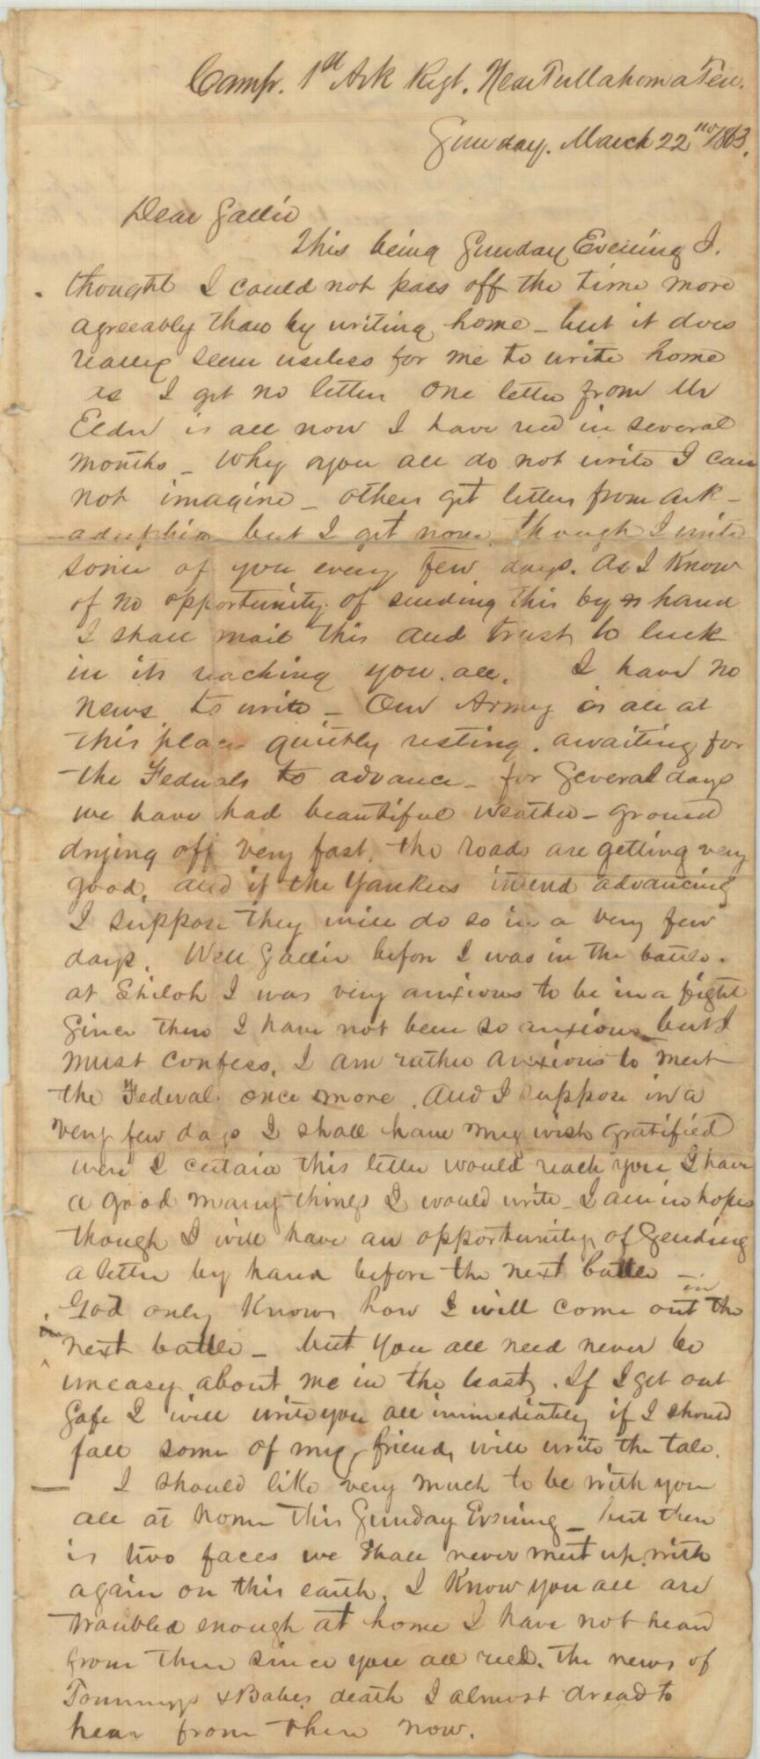 Camp. 1st Ark Regt. Near Tullahoma Ten.
Sunday. March 22nd/1863.
Dear Sallie
This being Sunday Evening I.
thought I could not pass off the time more
agreeably than by writing home - but it does
really seem useless for me to write home
as I get no letter One letter from Mr
Elder is all now I have recd in several
months - Why you all do not write I can
not imagine - others get letters from Ark-
adelphia but I get none, though I write
some of you every few days. As I know
of no opportunity of sending this by hand
I shall mail this and trust to luck
in its reaching you all. I have no
news to write - Our Army is all at
this place quietly resting. awaiting for
the Federals to advance - for Several days
we have had beautiful weather - ground
drying off very fast, the roads are getting very
good, and if the Yankees intend advancing
I suppose they will do so in a very few
days. Well Sallie before I was in the battle.
at Shiloh I was very anxious to be in a fight
Since then I have not been so anxious but I
must confess, I am rather anxious to meet
the Federal once more. And I suppose in a
very few days I shall have my wish gratified
were I certain this letter would reach you I have
a good many things I would write - I am in hopes
though I will have an opportunity of Sending
a letter by hand before the next battle -
God only knows how I will come out in the
next battle - but you all need never be
uneasy about me in the least. If I get out
Safe I will write you all immediately if I should
fall some of my friends will write the tale.
- I should like very much to be with you
all at home this Sunday Evening - but there
is two faces we shall never meet up with
again on this earth. I know you all are
troubled enough at home I have not heard
from there since you all recd. the news of
Tommys & Babes death I almost dread to
hear from there now.